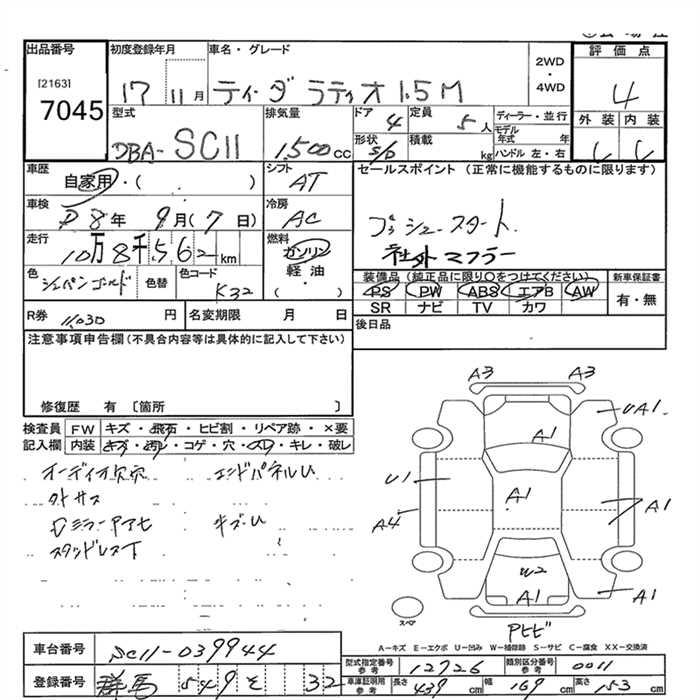 出品番号 初度登録年月 車名・グレード 2WD・4WD 評価点
[2163] 7045
17 11月 ティーダ ラティオ 1.5M 4
外装 内装
C C
型式 排気量 ドア 定員 ディーラー・並行
DBA-SC11 1,500cc 4 5人
モデル年式 年
形状 積載 ハンドル 左・右
S/D kg
車歴 シフト セールスポイント (正常に機能するものに限ります)
自家用・( ) AT
車検 冷房
8年 9月(7日) AC プッシュースタート
走行 燃料 社外マフラー
10万8千562km ガソリン
軽油・( )
色 色替 色コード
シャパンゴールド K32
装備品 (純正品に限り○をつけてください) 新車保証書
PS PW ABS エアB AW 有・無
SR ナビ TV カワ
R券 11,030円 名変期限 月 日 後日品
注意事項申告欄(不具合内容等は具体的に記入して下さい)
修復歴 有 〔箇所 〕
検査員 FW キズ・飛石・ヒビ割・リペア跡・×要
記入欄 内装 キズ・汚レ・コゲ・穴・スレ・キレ・破レ
オーディオ欠穴 エンドパネルU
外サス
ミラー キズ・U
スタッドレスT
A3 A3
UA1
A1
U1 A1 A1
A4
W2
A1 A1
スペア
Pヒビ
A-キズ E-エクボ U-凹み W-補修跡 S-サビ C-腐食 XX-交換済
車台番号 SC11-039944
型式指定番号 参考 12726 類別区分番号 参考 0011
登録番号 群馬 549 そ 32
車庫証明用 参考 長さ 439cm 幅 169cm 高さ 153cm